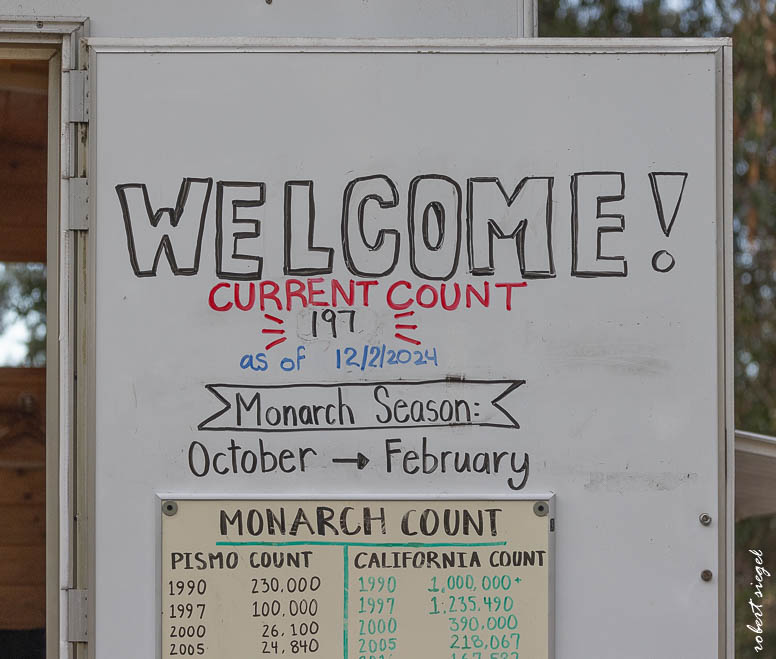 WELCOME!
CURRENT COUNT
197
as of 12/2/2024
Monarch Season:
October → February
MONARCH COUNT
PISMO COUNT CALIFORNIA COUNT
1990 230,000 1990 1,000,000+
1997 100,000 1997 1,235,490
2000 26,100 2000 390,000
2005 24,840 2005 218,067
robert siegel